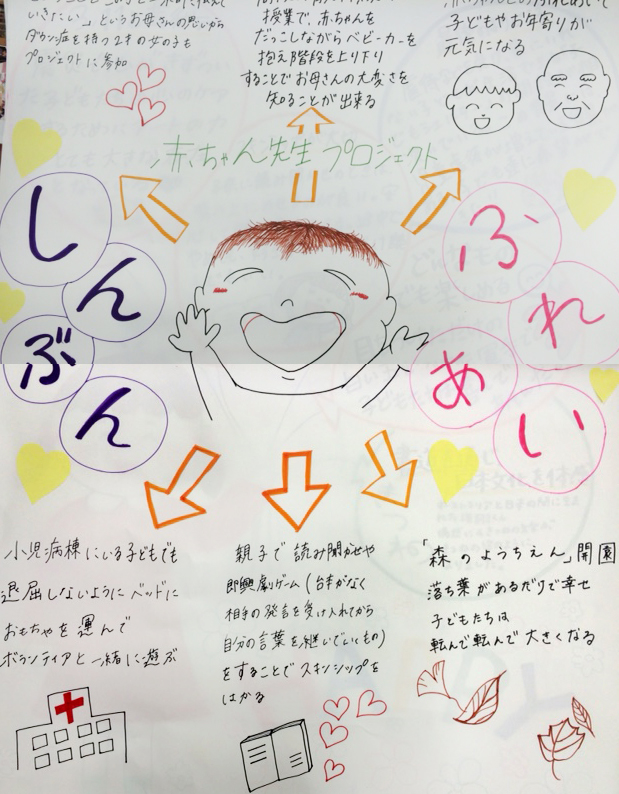 いきたい」というお母さんの思いから
ダウン症を持つ2才の女の子も
プロジェクトに参加
授業で、赤ちゃんを
だっこしながらベビーカーを
抱え階段を上り下り
することでお母さんの大変さを
知ることが出来る
子どもやお年寄りが
元気になる
赤ちゃん先生プロジェクト
しんぶん
ふれあい
小児病棟にいる子どもでも
退屈しないようにベッドに
おもちゃを運んで
ボランティアと一緒に遊ぶ
親子で読み聞かせや
即興劇ゲーム(台本がなく
相手の発言を受け入れてから
自分の言葉を継いでいくもの)
をすることでスキンシップを
はかる
「森のようちえん」開園
落ち葉があるだけで幸せ
子どもたちは
転んで転んで大きくなる